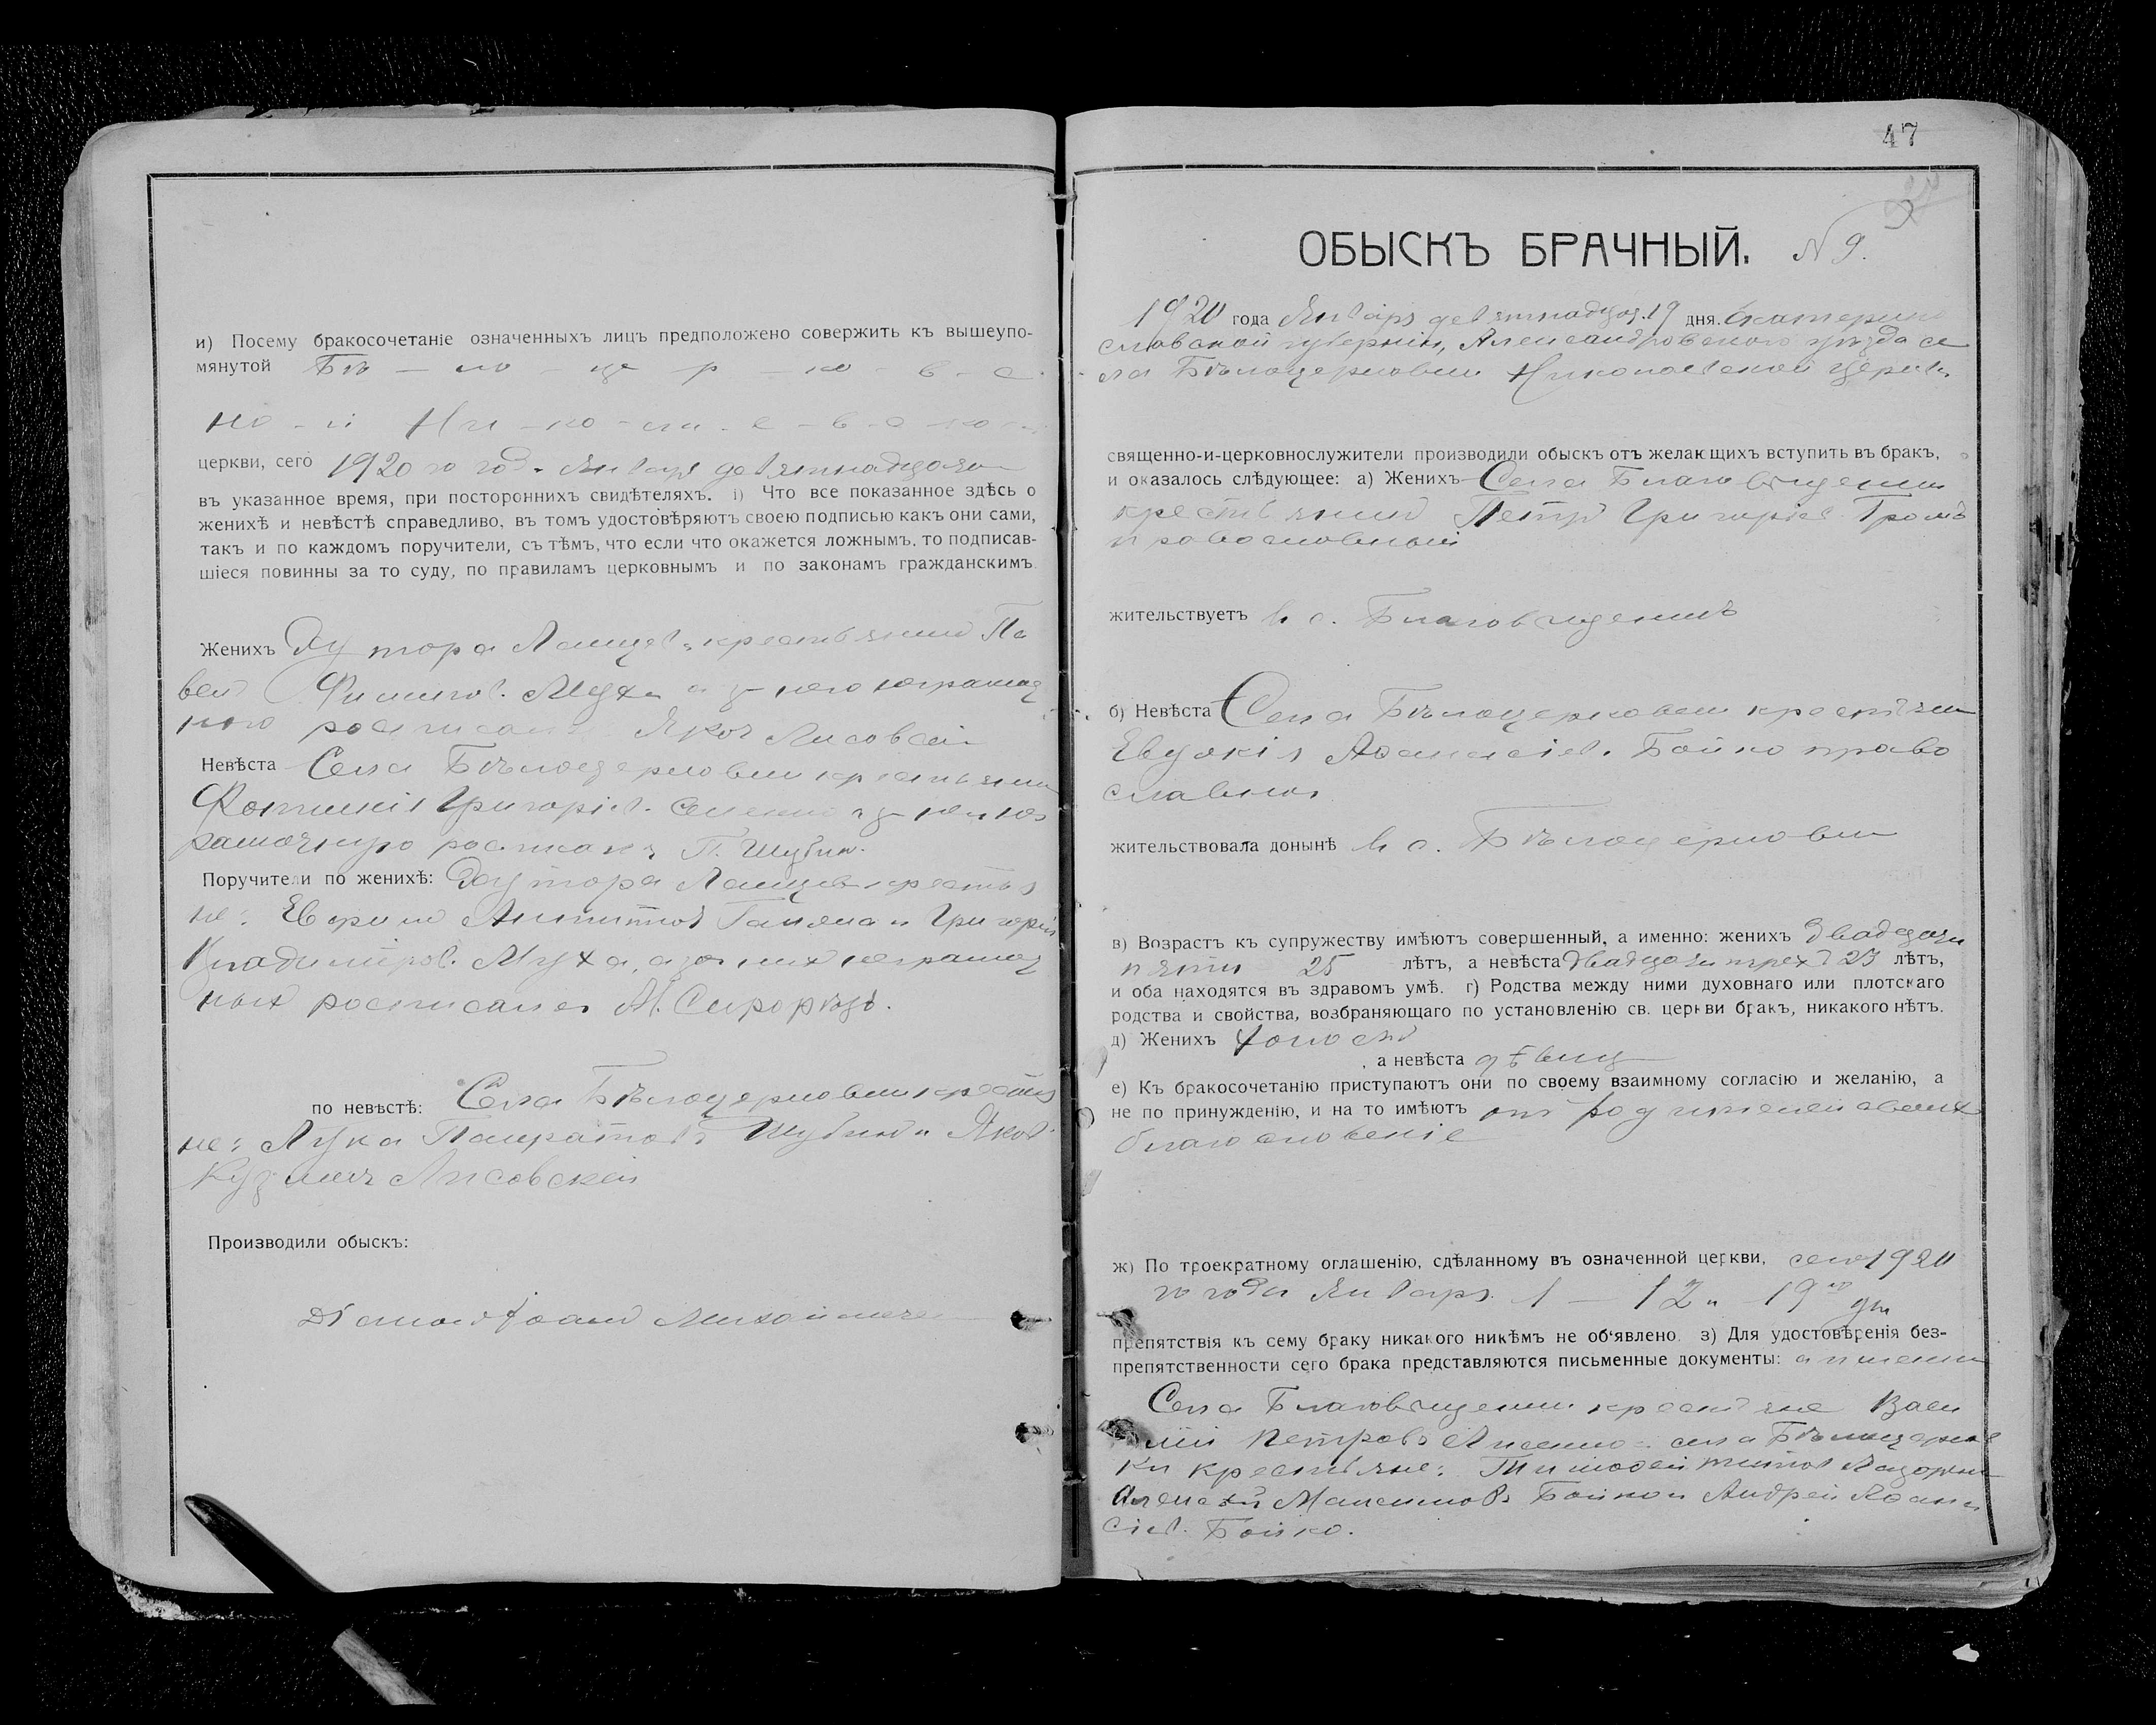 и) Посему бракосочетаніе означенныхъ лицъ предположено совержить къ вышеупо-
мянутой Бѣ - ло - це - р - ко - в - с
ко - й Ни - ко - ла - е - в - с ко
церкви, сего 1920 го год. Января девятнадцатаго
въ указанное время, при постороннихъ свидѣтеляхъ. і) Что все показанное здѣсь о
женихѣ и невѣстѣ справедливо, въ томъ удостовѣряютъ своею подписью какъ они сами,
такъ и по каждомъ поручители, съ тѣмъ, что если что окажется ложнымъ, то подписав-
шіеся повинны за то суду, по правиламъ церковнымъ и по законамъ гражданскимъ.
Женихъ Хутора крестьянин Па
вел Филипов. Муха а за него неграмот
ного росписался Яков Лисовскій
Невѣста Села Бѣлоцерковки крестьянка
Григоріев. а за нея не
грамотную росписался П. Шубин.
Поручители по женихѣ: Хутора крестья
не: и Григорій
Владиміров. Муха, а за них неграмот
ных росписался
по невѣстѣ: Села Бѣлоцерковки крестья
не: Лука Панкратов Шубин и Яков
Кузмич Лисовскій
Производили обыскъ:
Діакон Іоанн
47
ОБЫСКЪ БРАЧНЫЙ. N 9.
1920 года Января девятнадцат. 19 дня. Екатерино
славской губерніи, Александровского уѣзда се
ла Бѣлоцерковки Николаевской церкви
священно-и-церковнослужители производили обыскъ отъ желающихъ вступить въ бракъ,
и оказалось слѣдующее: а) Женихъ Села Благовѣщенки
крестьянин Петр Григоріев Громъ
православный
жительствуетъ в с. Благовѣщенкѣ
б) Невѣста Села Бѣлоцерковки крестьян
Евдокія Афанасіев. Бойко право
славная
жительствовала донынѣ в с. Бѣлоцерковки
в) Возрастъ къ супружеству имѣютъ совершенный, а именно: женихъ двадцати
пяти 25 лѣтъ, а невѣста двадцати трех 23 лѣтъ,
и оба находятся въ здравомъ умѣ. г) Родства между ними духовнаго или плотскаго
родства и свойства, возбраняющаго по установленію св. церкви бракъ, никакого нѣтъ.
д) Женихъ холост
, а невѣста дѣвица
е) Къ бракосочетанію приступаютъ они по своему взаимному согласію и желанію, а
не по принужденію, и на то имѣютъ от родителей своих
благословеніе
ж) По троекратному оглашенію, сдѣланному въ означенной церкви, сего 1920
го года Января 1 — 12 и 19 го дня
препятствія къ сему браку никакого никѣмъ не об'явлено. з) Для удостовѣренія без-
препятственности сего брака представляются письменные документы:
Села Благовѣщенки крестьяне Васи
лій Петровъ Лисенко села Бѣлоцерков
ки крестьяне: Тимофей Титов
Алексѣй Максимовъ Бойко и Андрей Афана
сіев. Бойко.